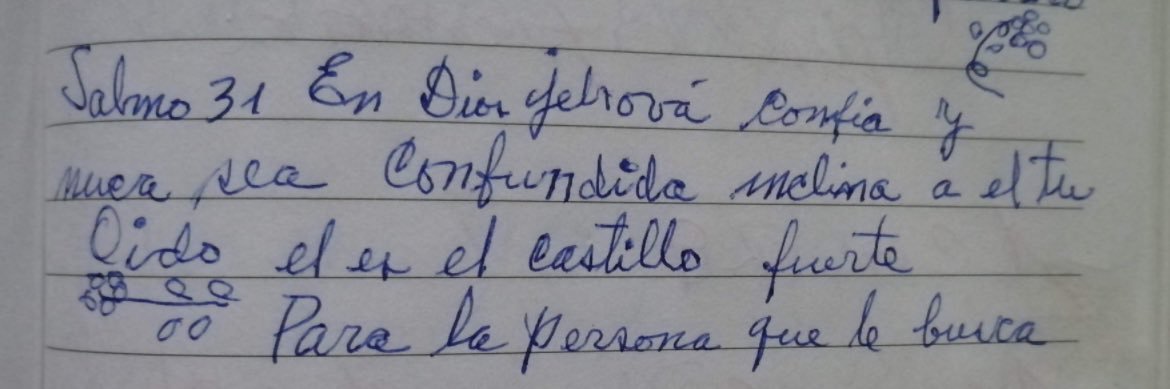 Salmo 31 En Dios jehová confia y
nuca sea Confundida inclina a el tu
Oido el es el castillo fuerte
Para la persona que le busca